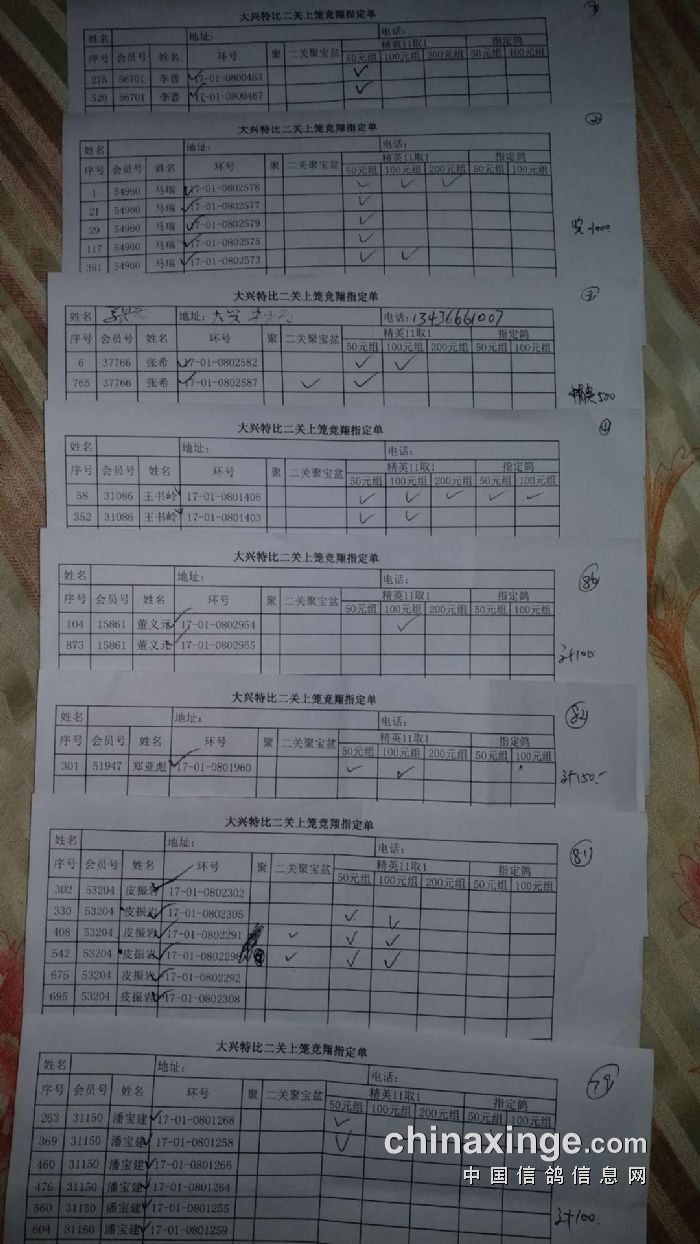 大兴特比二关上笼竞翔指定单 ①
姓名 地址: 电话:
序号 会员号 姓名 环号 聚 二关聚宝盆 精英11取1 指定鸽
50元组 100元组 200元组 50元组 100元组
275 56701 李晋 ✓17-01-0800463 ✓
520 56701 李晋 ✓17-01-0800467 ✓
大兴特比二关上笼竞翔指定单 ②
姓名 地址: 电话:
序号 会员号 姓名 环号 聚 二关聚宝盆 精英11取1 指定鸽
50元组 100元组 200元组 50元组 100元组
1 54960 马瑞 ✓17-01-0802578 ✓ ✓ ✓
21 54960 马瑞 ✓17-01-0802577 ✓
29 54960 马瑞 ✓17-01-0802579 ✓
117 54960 马瑞 ✓17-01-0802575 ✓
391 54960 马瑞 ✓17-01-0802573 ✓ ✓
大兴特比二关上笼竞翔指定单 ③
姓名 地址: 大兴 电话: 13436661007
序号 会员号 姓名 环号 聚 二关聚宝盆 精英11取1 指定鸽
50元组 100元组 200元组 50元组 100元组
6 37766 张希 ✓17-01-0802582 ✓ ✓
765 37766 张希 ✓17-01-0802587 ✓ ✓
500
大兴特比二关上笼竞翔指定单 ④
姓名 地址: 电话:
序号 会员号 姓名 环号 聚 二关聚宝盆 精英11取1 指定鸽
50元组 100元组 200元组 50元组 100元组
58 31086 王书岭 ✓17-01-0801406 ✓ ✓ ✓ ✓ ✓
352 31086 王书岭 ✓17-01-0801403 ✓ ✓
大兴特比二关上笼竞翔指定单 86
姓名 地址: 电话:
序号 会员号 姓名 环号 聚 二关聚宝盆 精英11取1 指定鸽
50元组 100元组 200元组 50元组 100元组
104 15861 董义元 ✓17-01-0802954 ✓
873 15861 董义元 ✓17-01-0802955
计100.
大兴特比二关上笼竞翔指定单 84
姓名 地址: 电话:
序号 会员号 姓名 环号 聚 二关聚宝盆 精英11取1 指定鸽
50元组 100元组 200元组 50元组 100元组
301 51947 郑亚彪 ✓17-01-0801960 ✓ ✓
计150.-
大兴特比二关上笼竞翔指定单 81
姓名 地址: 电话:
序号 会员号 姓名 环号 聚 二关聚宝盆 精英11取1 指定鸽
50元组 100元组 200元组 50元组 100元组
302 53204 皮振岩 ✓17-01-0802302
330 53204 皮振岩 ✓17-01-0802305 ✓ ✓
408 53204 皮振岩 ✓17-01-0802291 ✓ ✓ ✓
542 53204 皮振岩 ✓17-01-0802298 ✓ ✓ ✓
675 53204 皮振岩 ✓17-01-0802292
695 53204 皮振岩 ✓17-01-0802308
大兴特比二关上笼竞翔指定单 79
姓名 地址: 电话:
序号 会员号 姓名 环号 聚 二关聚宝盆 精英11取1 指定鸽
50元组 100元组 200元组 50元组 100元组
263 31150 潘宝建 ✓17-01-0801268 ✓
369 31150 潘宝建 ✓17-01-0801258 ✓
460 31150 潘宝建 ✓17-01-0801266
476 31150 潘宝建 ✓17-01-0801264
560 31150 潘宝建 ✓17-01-0801255
604 31150 潘宝建 ✓17-01-0801259
计100.
chinaxinge.com
中国信鸽信息网